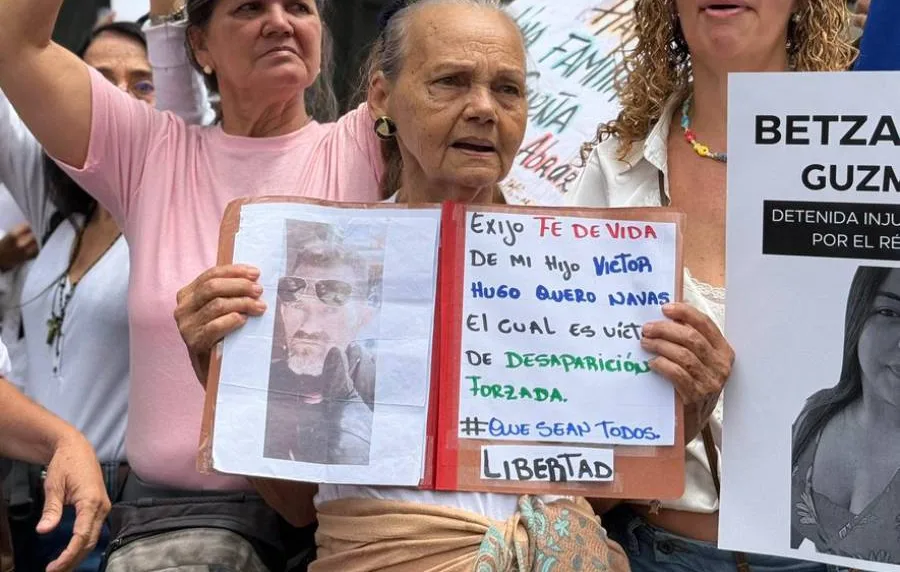 FAMIL
Abrar
EXIJO FE DE VIDA
DE MI HIJO VICTOR
HUGO QUERO NAVAS
EL CUAL ES VICT
DE DESAPARICIÓN
FORZADA.
#QUE SEAN TODOS.
LIBERTAD
BETZA
GUZM
DETENIDA INJU
POR EL RÉ